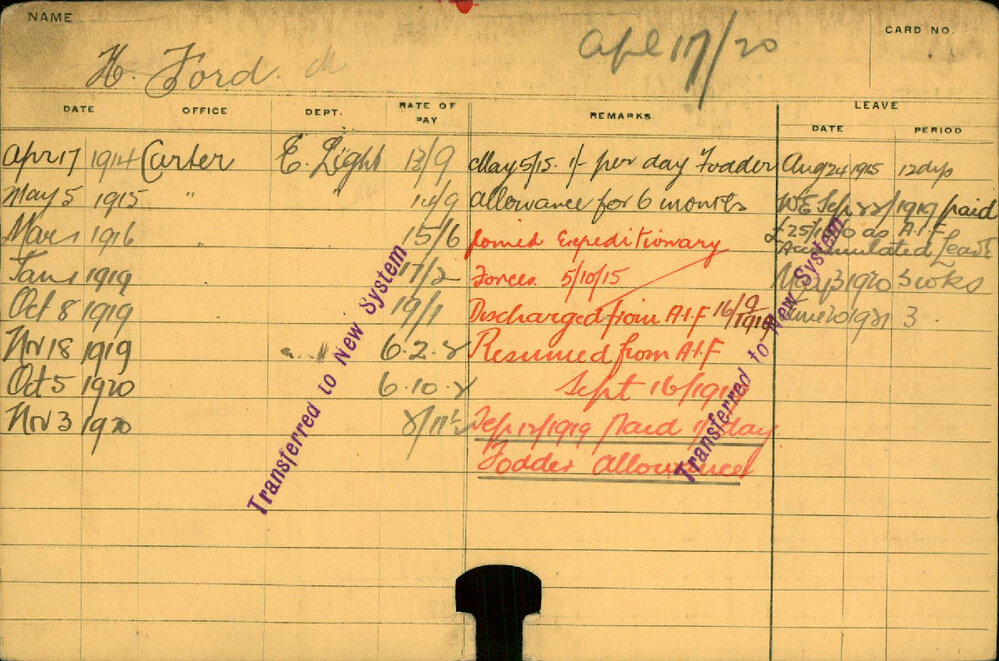 NAME
CARD NO.
H. Ford
Apl 17/20
DATE OFFICE DEPT. RATE OF PAY REMARKS LEAVE
DATE PERIOD
Apr 17 1914 Carter E. Light 13/9 May 5/15. 1/- per day Fodder Aug 24 1915 12 dys
May 5 1915 " " 14/9 allowance for 6 months W.E. Sep 22/1919 paid
Mar 1 1916 " 15/6 Joined Expeditionary as A.I.F.
Accumulated Leave
Jan 1 1919 17/2 Forces 5/10/15 May 3 1920 3 wks
Oct 8 1919 19/1 Discharged from A.I.F 16/9/1919 June 20 1921 3
Nov 18 1919 6.2.2 Resumed from A.I.F
Oct 5 1920 6.10.2 Sept 16/1919
Nov 3 1920 2/11½ Sep 12/1919 Paid 1/ day
Fodder Allowance
Transferred to New System
Transferred to New System